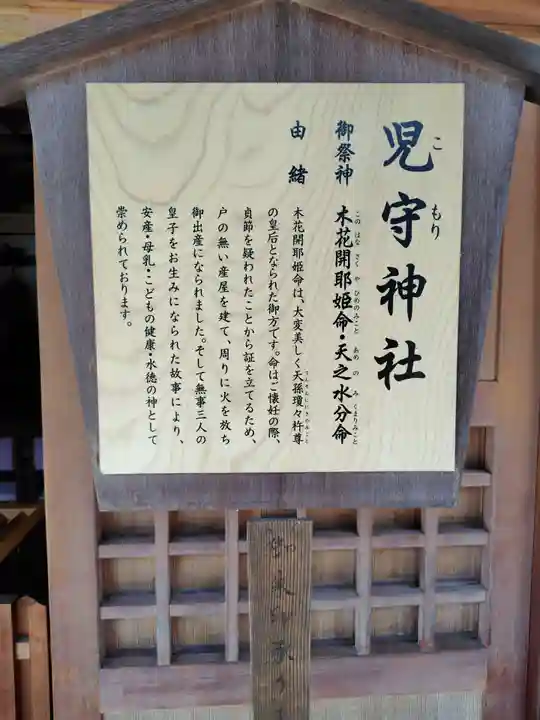 児守神社
こもり
御祭神 木花開耶姫命・天之水分命
このはなさくやひめのみこと あめのみくまりみこと
由緒
木花開耶姫命は、大変美しく天孫瓊々杵尊
の皇后となられた御方です。命はご懐妊の際、
貞節を疑われたことから証を立てるため、
戸の無い産屋を建て、周りに火を放ち
御出産になられました。そして無事三人の
皇子をお生みになられた故事により、
安産・母乳・こどもの健康・水徳の神として
崇められております。